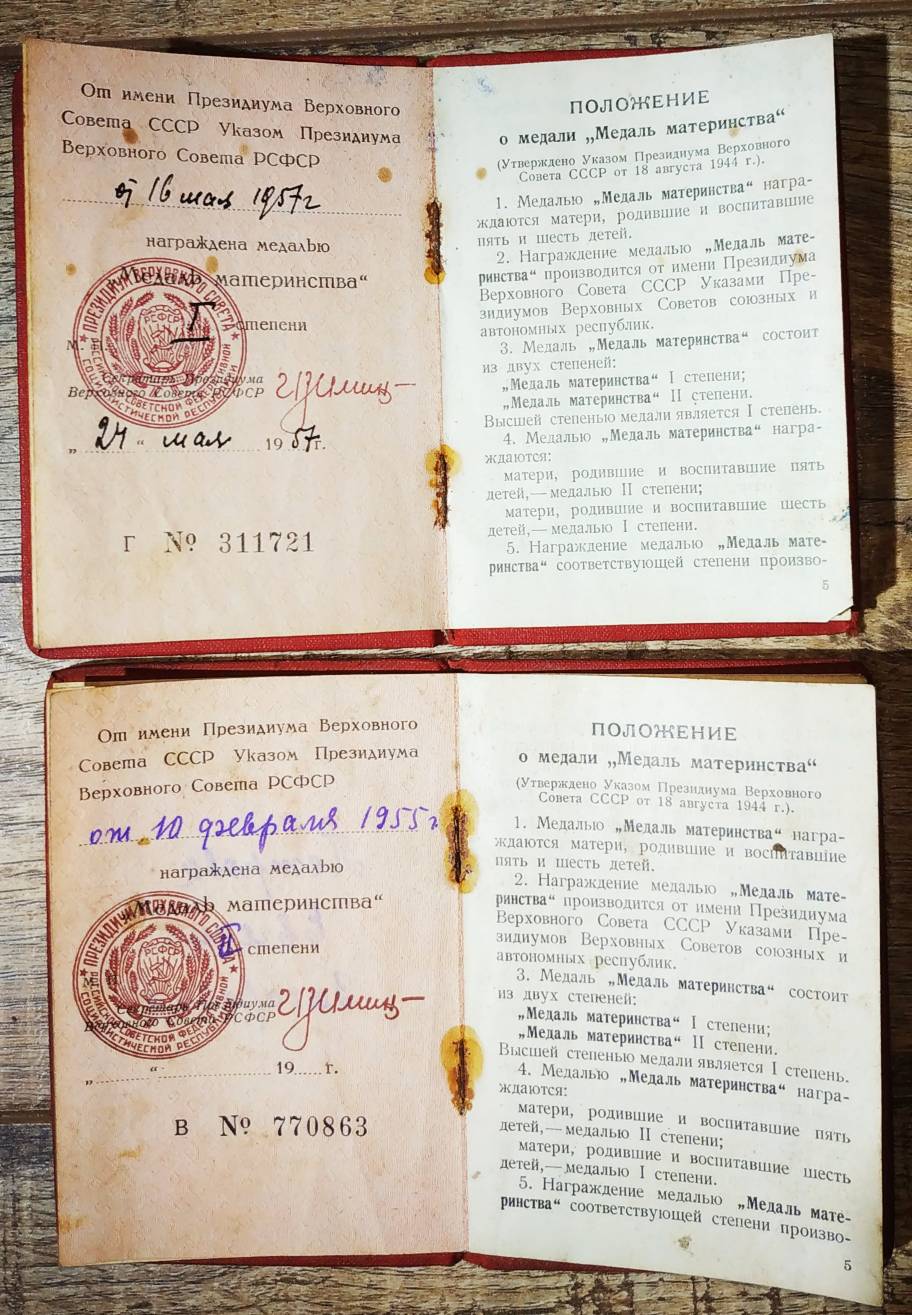 От имени Президиума Верховного
Совета СССР Указом Президиума
Верховного Совета РСФСР
от 16 мая 1957 г
награждена медалью
„Медаль материнства“
I степени
М. П.
Секретарь Президиума
Верховного Совета РСФСР
„24“ мая 1957 г.
Г № 311721
ПОЛОЖЕНИЕ
о медали „Медаль материнства“
(Утверждено Указом Президиума Верховного
Совета СССР от 18 августа 1944 г.).
1. Медалью „Медаль материнства“ награ-
ждаются матери, родившие и воспитавшие
пять и шесть детей.
2. Награждение медалью „Медаль мате-
ринства“ производится от имени Президиума
Верховного Совета СССР Указами Пре-
зидиумов Верховных Советов союзных и
автономных республик.
3. Медаль „Медаль материнства“ состоит
из двух степеней:
„Медаль материнства“ I степени;
„Медаль материнства“ II степени.
Высшей степенью медали является I степень.
4. Медалью „Медаль материнства“ награ-
ждаются:
матери, родившие и воспитавшие пять
детей,— медалью II степени;
матери, родившие и воспитавшие шесть
детей,— медалью I степени.
5. Награждение медалью „Медаль мате-
ринства“ соответствующей степени произво-
5
От имени Президиума Верховного
Совета СССР Указом Президиума
Верховного Совета РСФСР
от 10 февраля 1955 г
награждена медалью
„Медаль материнства“
II степени
Секретарь Президиума
Верховного Совета РСФСР
„ “ 19 г.
В № 770863
ПОЛОЖЕНИЕ
о медали „Медаль материнства“
(Утверждено Указом Президиума Верховного
Совета СССР от 18 августа 1944 г.).
1. Медалью „Медаль материнства“ награ-
ждаются матери, родившие и воспитавшие
пять и шесть детей.
2. Награждение медалью „Медаль мате-
ринства“ производится от имени Президиума
Верховного Совета СССР Указами Пре-
зидиумов Верховных Советов союзных и
автономных республик.
3. Медаль „Медаль материнства“ состоит
из двух степеней:
„Медаль материнства“ I степени;
„Медаль материнства“ II степени.
Высшей степенью медали является I степень.
4. Медалью „Медаль материнства“ награ-
ждаются:
матери, родившие и воспитавшие пять
детей,— медалью II степени;
матери, родившие и воспитавшие шесть
детей,— медалью I степени.
5. Награждение медалью „Медаль мате-
ринства“ соответствующей степени произво-
5